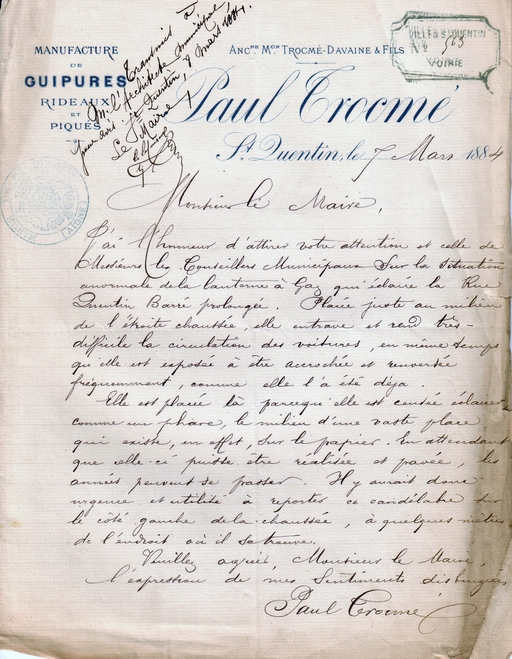 MANUFACTURE
DE
GUIPURES
RIDEAUX
ET
PIQUÉS
Transmis à
M. l'Architecte municipal
pour avis. St Quentin, 8 mars 1884.
Le Maire
ANCNE MON TROCMÉ-DAVAINE & FILS
VILLE DE ST QUENTIN
No 563
VOIRIE
Paul Trocmé
St. Quentin, le 7 Mars 1884
MAIRIE
(AISNE)
Monsieur le Maire,
J'ai l'honneur d'attirer votre attention et celle de
Messieurs les Conseillers Municipaux sur la situation
anormale de la lanterne à Gaz qui éclaire la Rue
Quentin Barré prolongée. Placée juste au milieu
de l'étroite chaussée, elle entrave et rend très-
difficile la circulation des voitures, en même temps
qu'elle est exposée à être accrochée et renversée
fréquemment, comme elle l'a été déjà.
Elle est placée là parcequ'elle est censée éclairer
comme un phare, le milieu d'une vaste place
qui existe, en effet, sur le papier. En attendant
que celle-ci puisse être réalisée et pavée, les
années peuvent se passer. Il y aurait donc
urgence et utilité à reporter ce candélabre sur
le côté gauche de la chaussée, à quelques mètres
de l'endroit où il se trouve.
Veuillez agréer, Monsieur le Maire,
l'expression de mes Sentiments distingués
Paul Trocmé